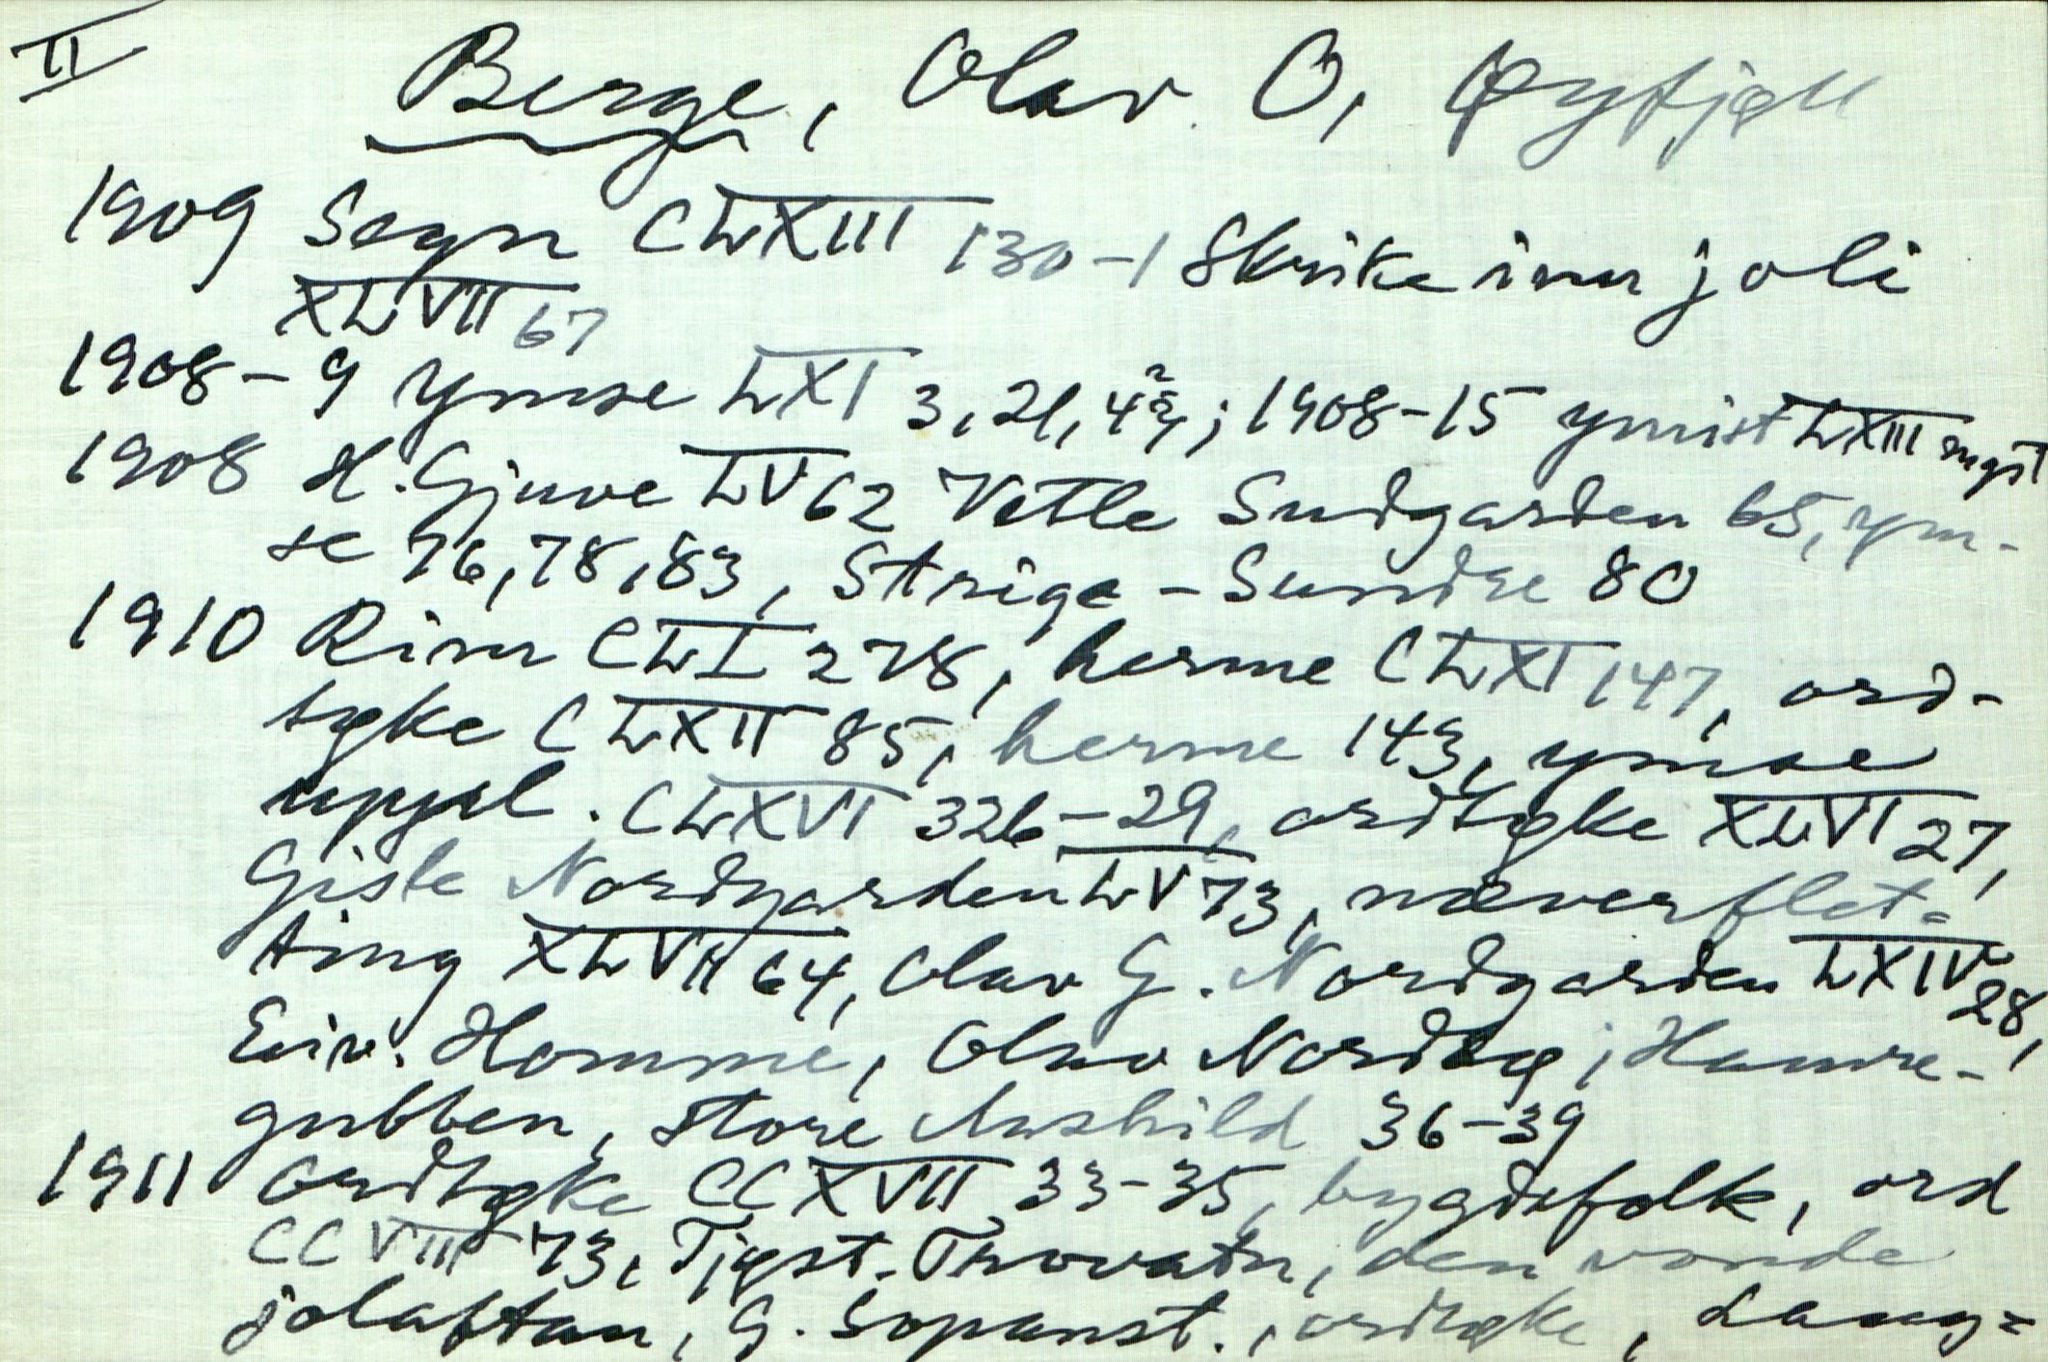 II
Berge, Olav O, Øyfjell
1909 Segn CLXIII 130-1 Skrike inn joli
XLVII 67
1908-9 Ymse LXI 3, 21, 42; 1908-15 ymist LXIII mest
1908 H. Gjuve LV 62 Vetle Sudgarden 65, ym-
se 76, 78, 83, Strige-Sundre 80
1910 Rim CLI 278, herme CLXI 147, ord-
tøke CLXII 85, herme 143, ymse
uppsk. CLXVI 326-29, ordtøke XLVI 27,
Gisle Nordgarden LV 73, næverflet=
ting XLVII 64, Olav G. Nordgarden LXIV 28,
Eiv. Homme, Olav Nordbø, Hamre-
gubben, store Aashild 36-39
1911 Ordtøke CCXVII 33-35, bygdefolk, ord
CCVIII 73, Tjøst. Trovatn, den vonde
jolaftan, G. Sopanst., ordtøke, Lang=